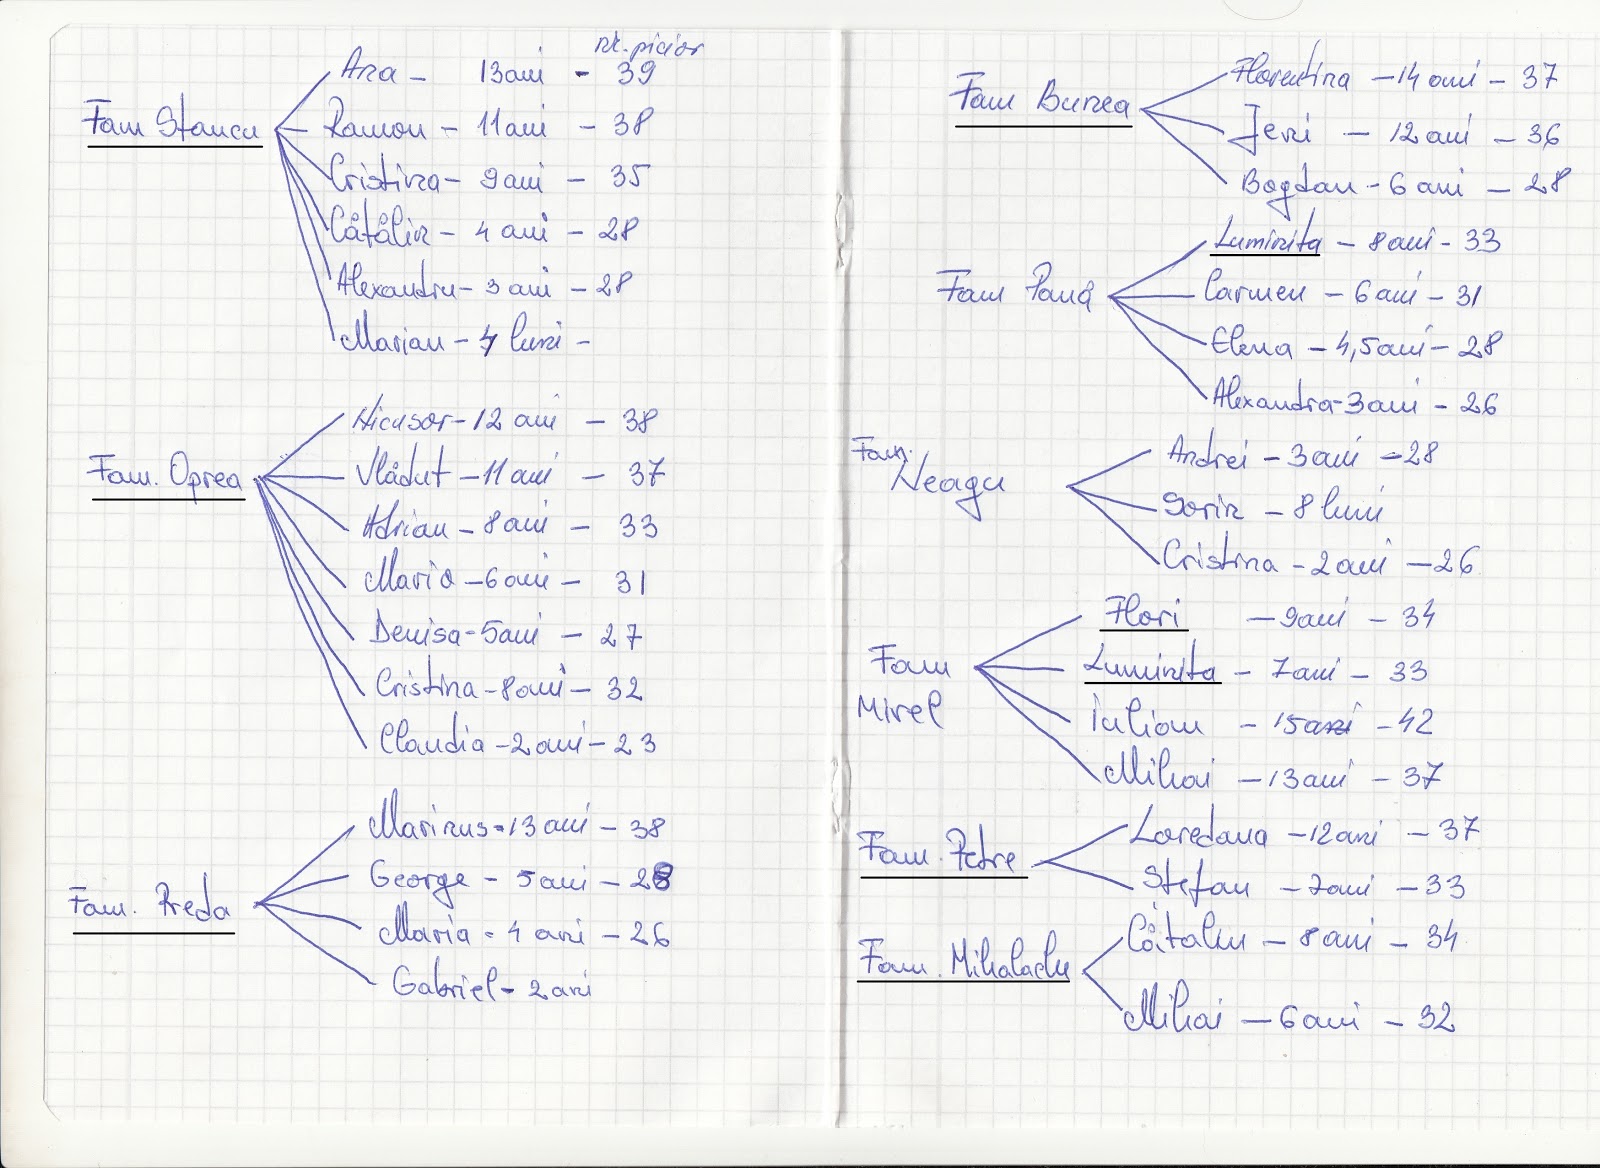 nr. picior
Fam Stancu
Ana - 13 ani - 39
Ramon - 11 ani - 38
Cristina - 9 ani - 35
Cătălin - 4 ani - 28
Alexandru - 3 ani - 28
Marian - 4 luni -
Fam. Oprea
Nicusor - 12 ani - 38
Vlădut - 11 ani - 37
Adrian - 8 ani - 33
Maria - 6 ani - 31
Denisa - 5 ani - 27
Cristina - 8 ani - 32
Claudia - 2 ani - 23
Fam. Preda
Marinus - 13 ani - 38
George - 5 ani - 28
Maria - 4 ani - 26
Gabriel - 2 ani
Fam Bunea
Florentina - 14 ani - 37
Jeni - 12 ani - 36
Bogdan - 6 ani - 28
Fam Pană
Luminita - 8 ani - 33
Carmen - 6 ani - 31
Elena - 4,5 ani - 28
Alexandra - 3 ani - 26
Fam. Neagu
Andrei - 3 ani - 28
Sorin - 8 luni
Cristina - 2 ani - 26
Fam Mirel
Flori - 9 ani - 34
Luminita - 7 ani - 33
Iulian - 15 ani - 42
Mihai - 13 ani - 37
Fam. Petre
Loredana - 12 ani - 37
Stefan - 7 ani - 33
Fam. Mihalache
Cătalin - 8 ani - 34
Mihai - 6 ani - 32